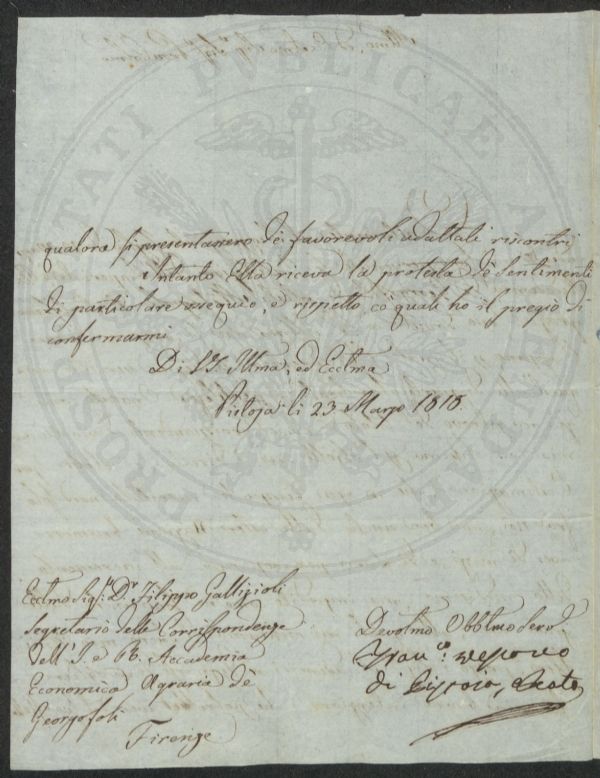 PROSPERITATI PVBLICAE AVGENDAE
qualora si presentassero dei favorevoli adattati riscontri
Intanto Ella riceva la protesta de sentimenti
di particolare ossequio, e rispetto, co' quali ho il pregio di
confermarmi
Di VS. Illma, ed Ecclma
Pistoja li 23 Marzo 1818.
Ecclmo Sigr. Dr. Filippo Gallizioli
Segretario delle Corrispondenze
dell' I. e R. Accademia
Economico Agraria de
Georgofoli
Firenze
Devotmo Obblmo Servo.
Franco. Vescovo
di Pistoia, e Prato